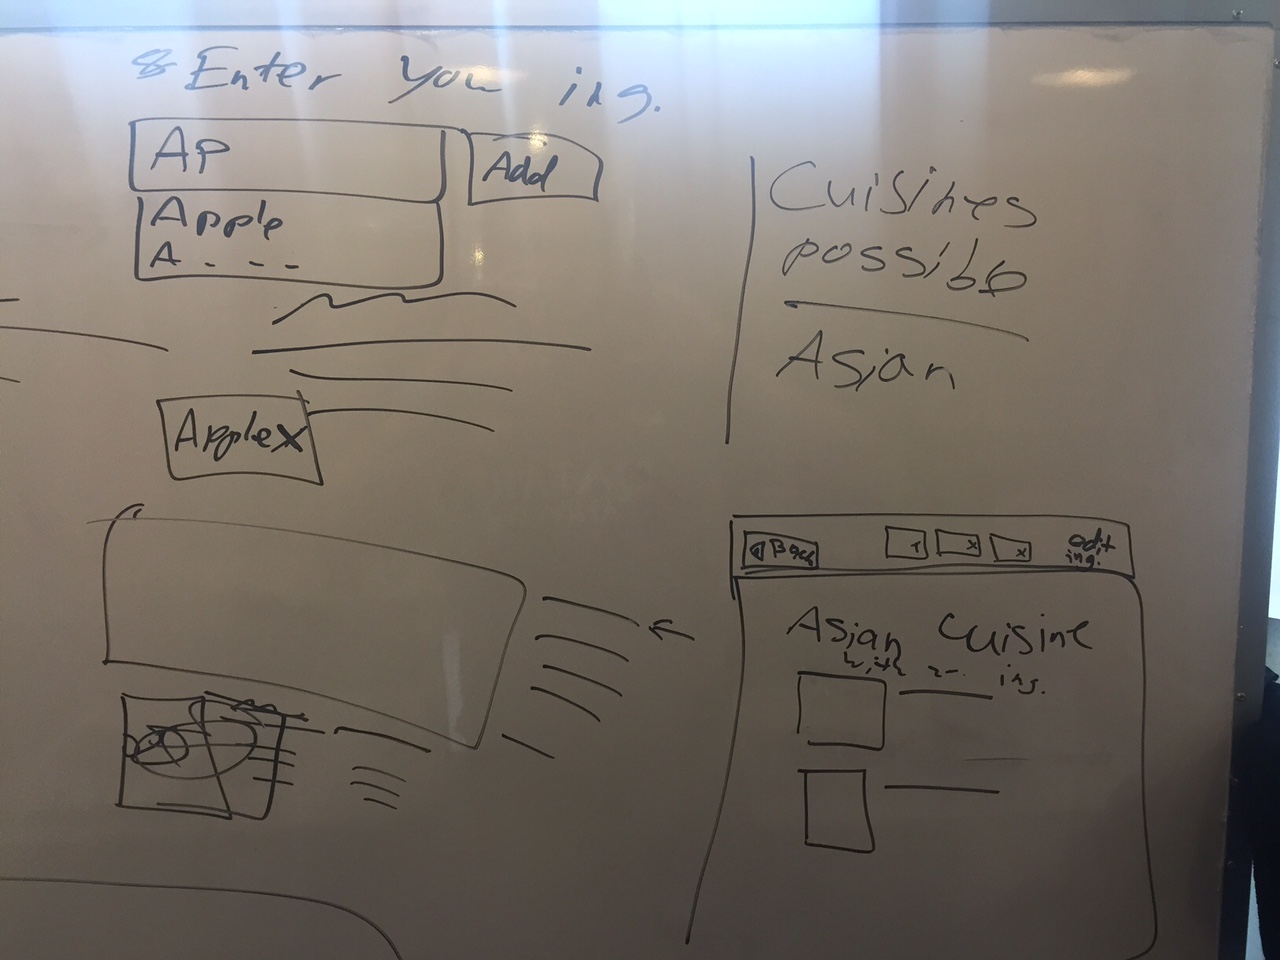 Enter you ing.
Ap
Add
Apple
A - - -
Apple x
Cuisines
possible
Asian
Back
x
x
edit
ing.
Asian Cuisine
with ... ing.